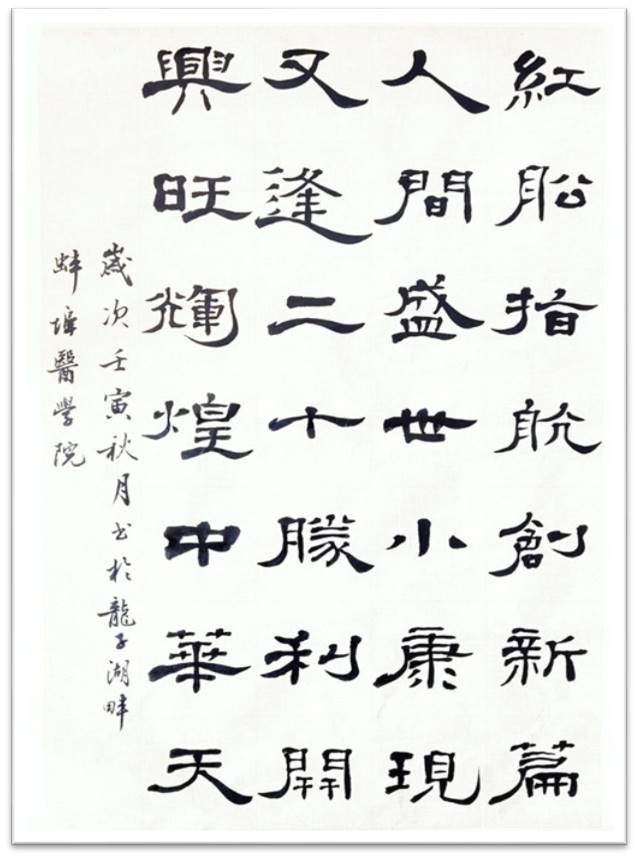 紅船指航創新篇
人間盛世小康現
又逢二十勝利開
興旺輝煌中華天
歲次壬寅秋月书於龍子湖畔
蚌埠醫學院